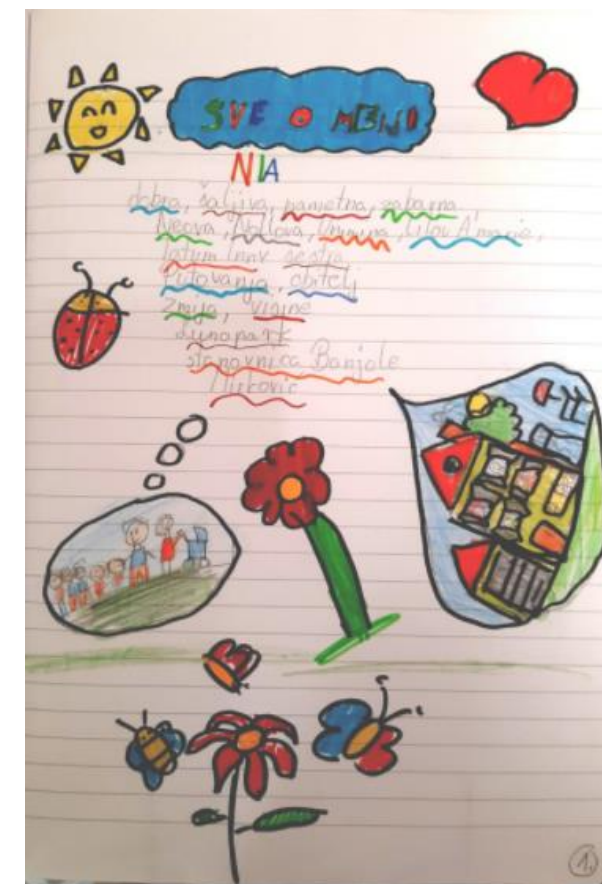 SVE O MENI
NIA
dobra, šaljiva, pametna, zabavna
Neova, Noslova, Umiina, Lilou A'marie,
Tatum Innv sestra
Putovanja, obitelj
Zmija, visine
Lunapark
stanovnica Banjole
Mirković
1.